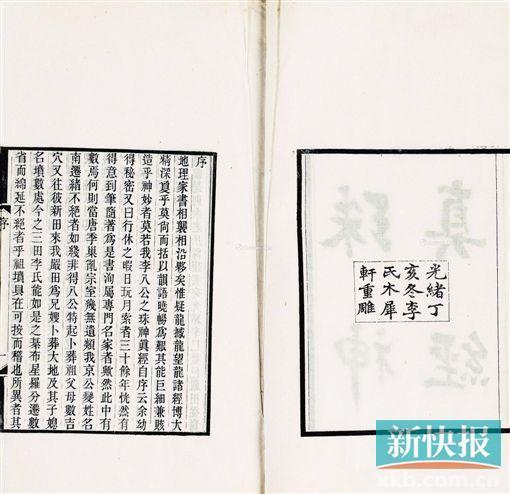 光緒丁
亥冬李
氏木犀
軒重雕
序
地理家書相襲相沿夥矣惟疑龍撼龍望龍諸經博大
精深夐乎莫尚而囿以韻語曉暢為艱其能巨細兼賅
造乎神妙者莫若我李八公之珠神眞經自序云余幼
得秘密又曰行休之暇日玩月索者三十餘年恍然有
得意到筆隨著為是書洵屬專門名家者歟然此中有
數焉何則當唐季巢亂宗室殘無遺類我京公變姓名
南遷緒不絕者如綫非得八公特起卜葬祖父母數吉
穴又往彼新田來我嚴田為兄嫂卜葬大地及其子媳
名墳數處今之三田李氏能如是之棊布星羅分遷數
省而綿延不絕者乎祖墳具在可按而稽也所異者其
序
一
新快报
xkb.com.cn